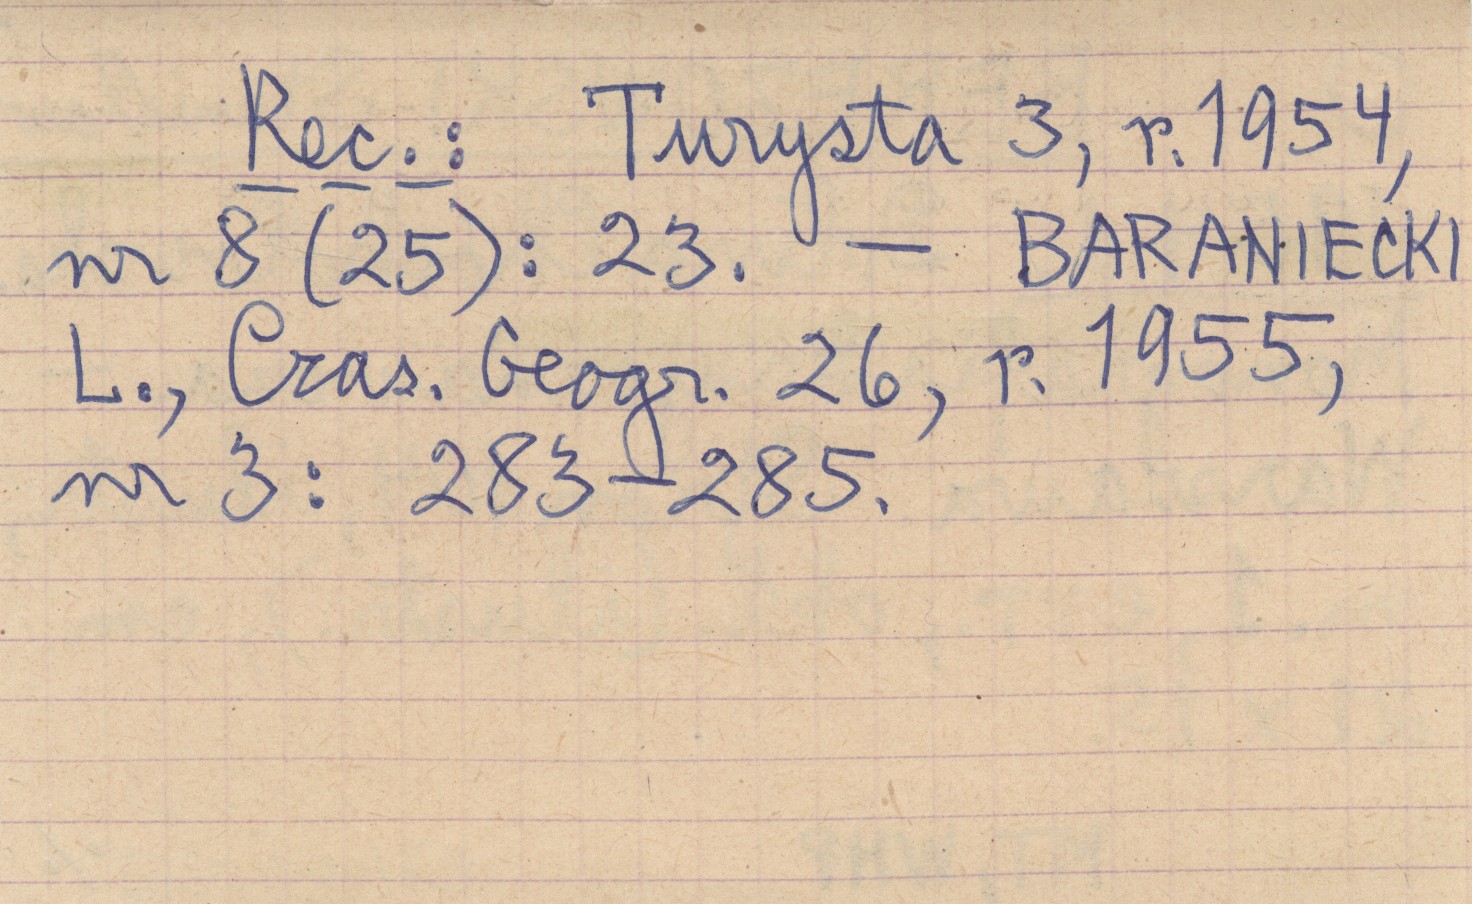 Rec.: Turysta 3, r. 1954,
nr 8 (25): 23. — BARANIECKI
L., Czas. Geogr. 26, r. 1955,
nr 3: 283-285.